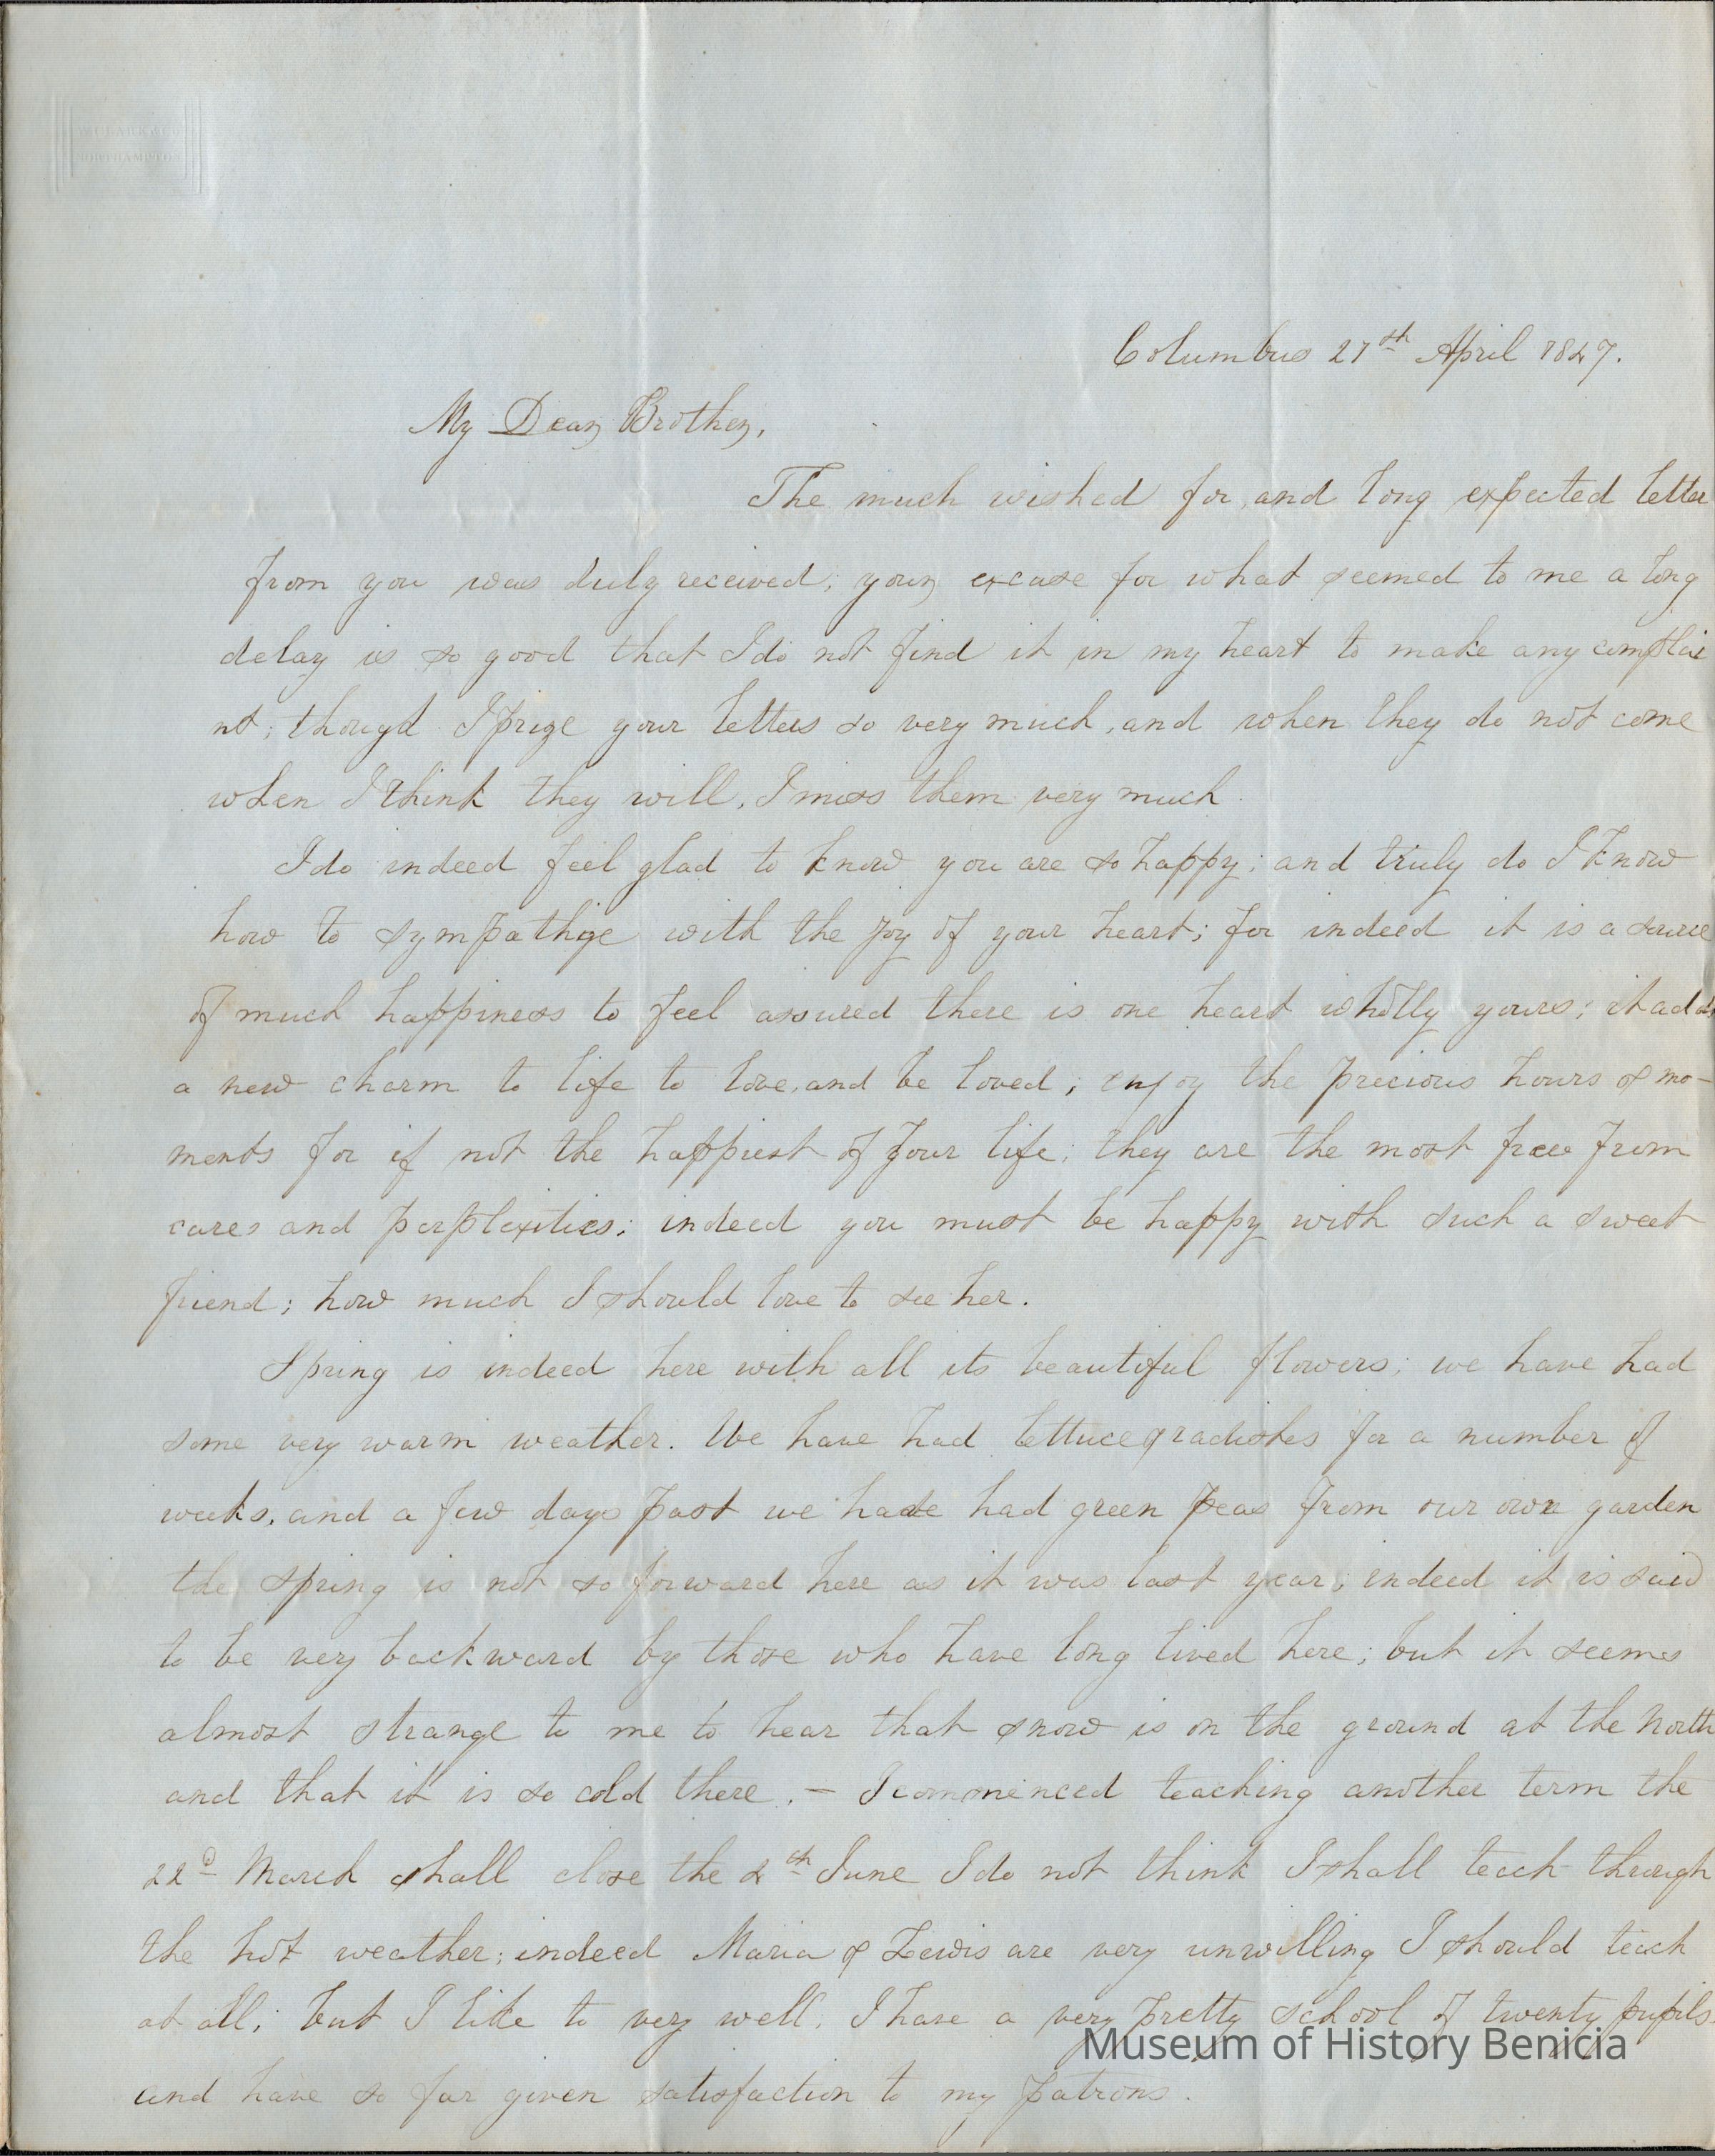 Columbus 21st April 1847.
My Dear Brother,
The much wished for, and long expected letter
from you was duly received; your excuse for what seemed to me a long
delay is so good that I do not find it in my heart to make any complai
nt; though I prize your letters so very much, and when they do not come
when I think they will, I miss them very much.
I do indeed feel glad to know you are so happy; and truly do I know
how to sympathize with the joy of your heart; for indeed it is a source
of much happiness to feel assured there is one heart wholly yours; it adds
a new charm to life to love, and be loved; enjoy the precious hours & mo-
ments for if not the happiest of your life; they are the most free from
cares and perplexities; indeed you must be happy with such a sweet
friend; how much I should love to see her.
Spring is indeed here with all its beautiful flowers; we have had
some very warm weather. We have had lettuce & radishes for a number of
weeks, and a few days past we have had green peas from our own garden
the spring is not so forward here as it was last year; indeed it is said
to be very backward by those who have long lived here; but it seems
almost strange to me to hear that snow is on the ground at the North
and that it is so cold there. – I commenced teaching another term the
22d March shall close the 4th June I do not think I shall teach through
the hot weather; indeed Maria & Lewis are very unwilling I should teach
at all; but I like to very well. I have a very pretty school of twenty pupils.
and have so far given satisfaction to my patrons.
Museum of History Benicia